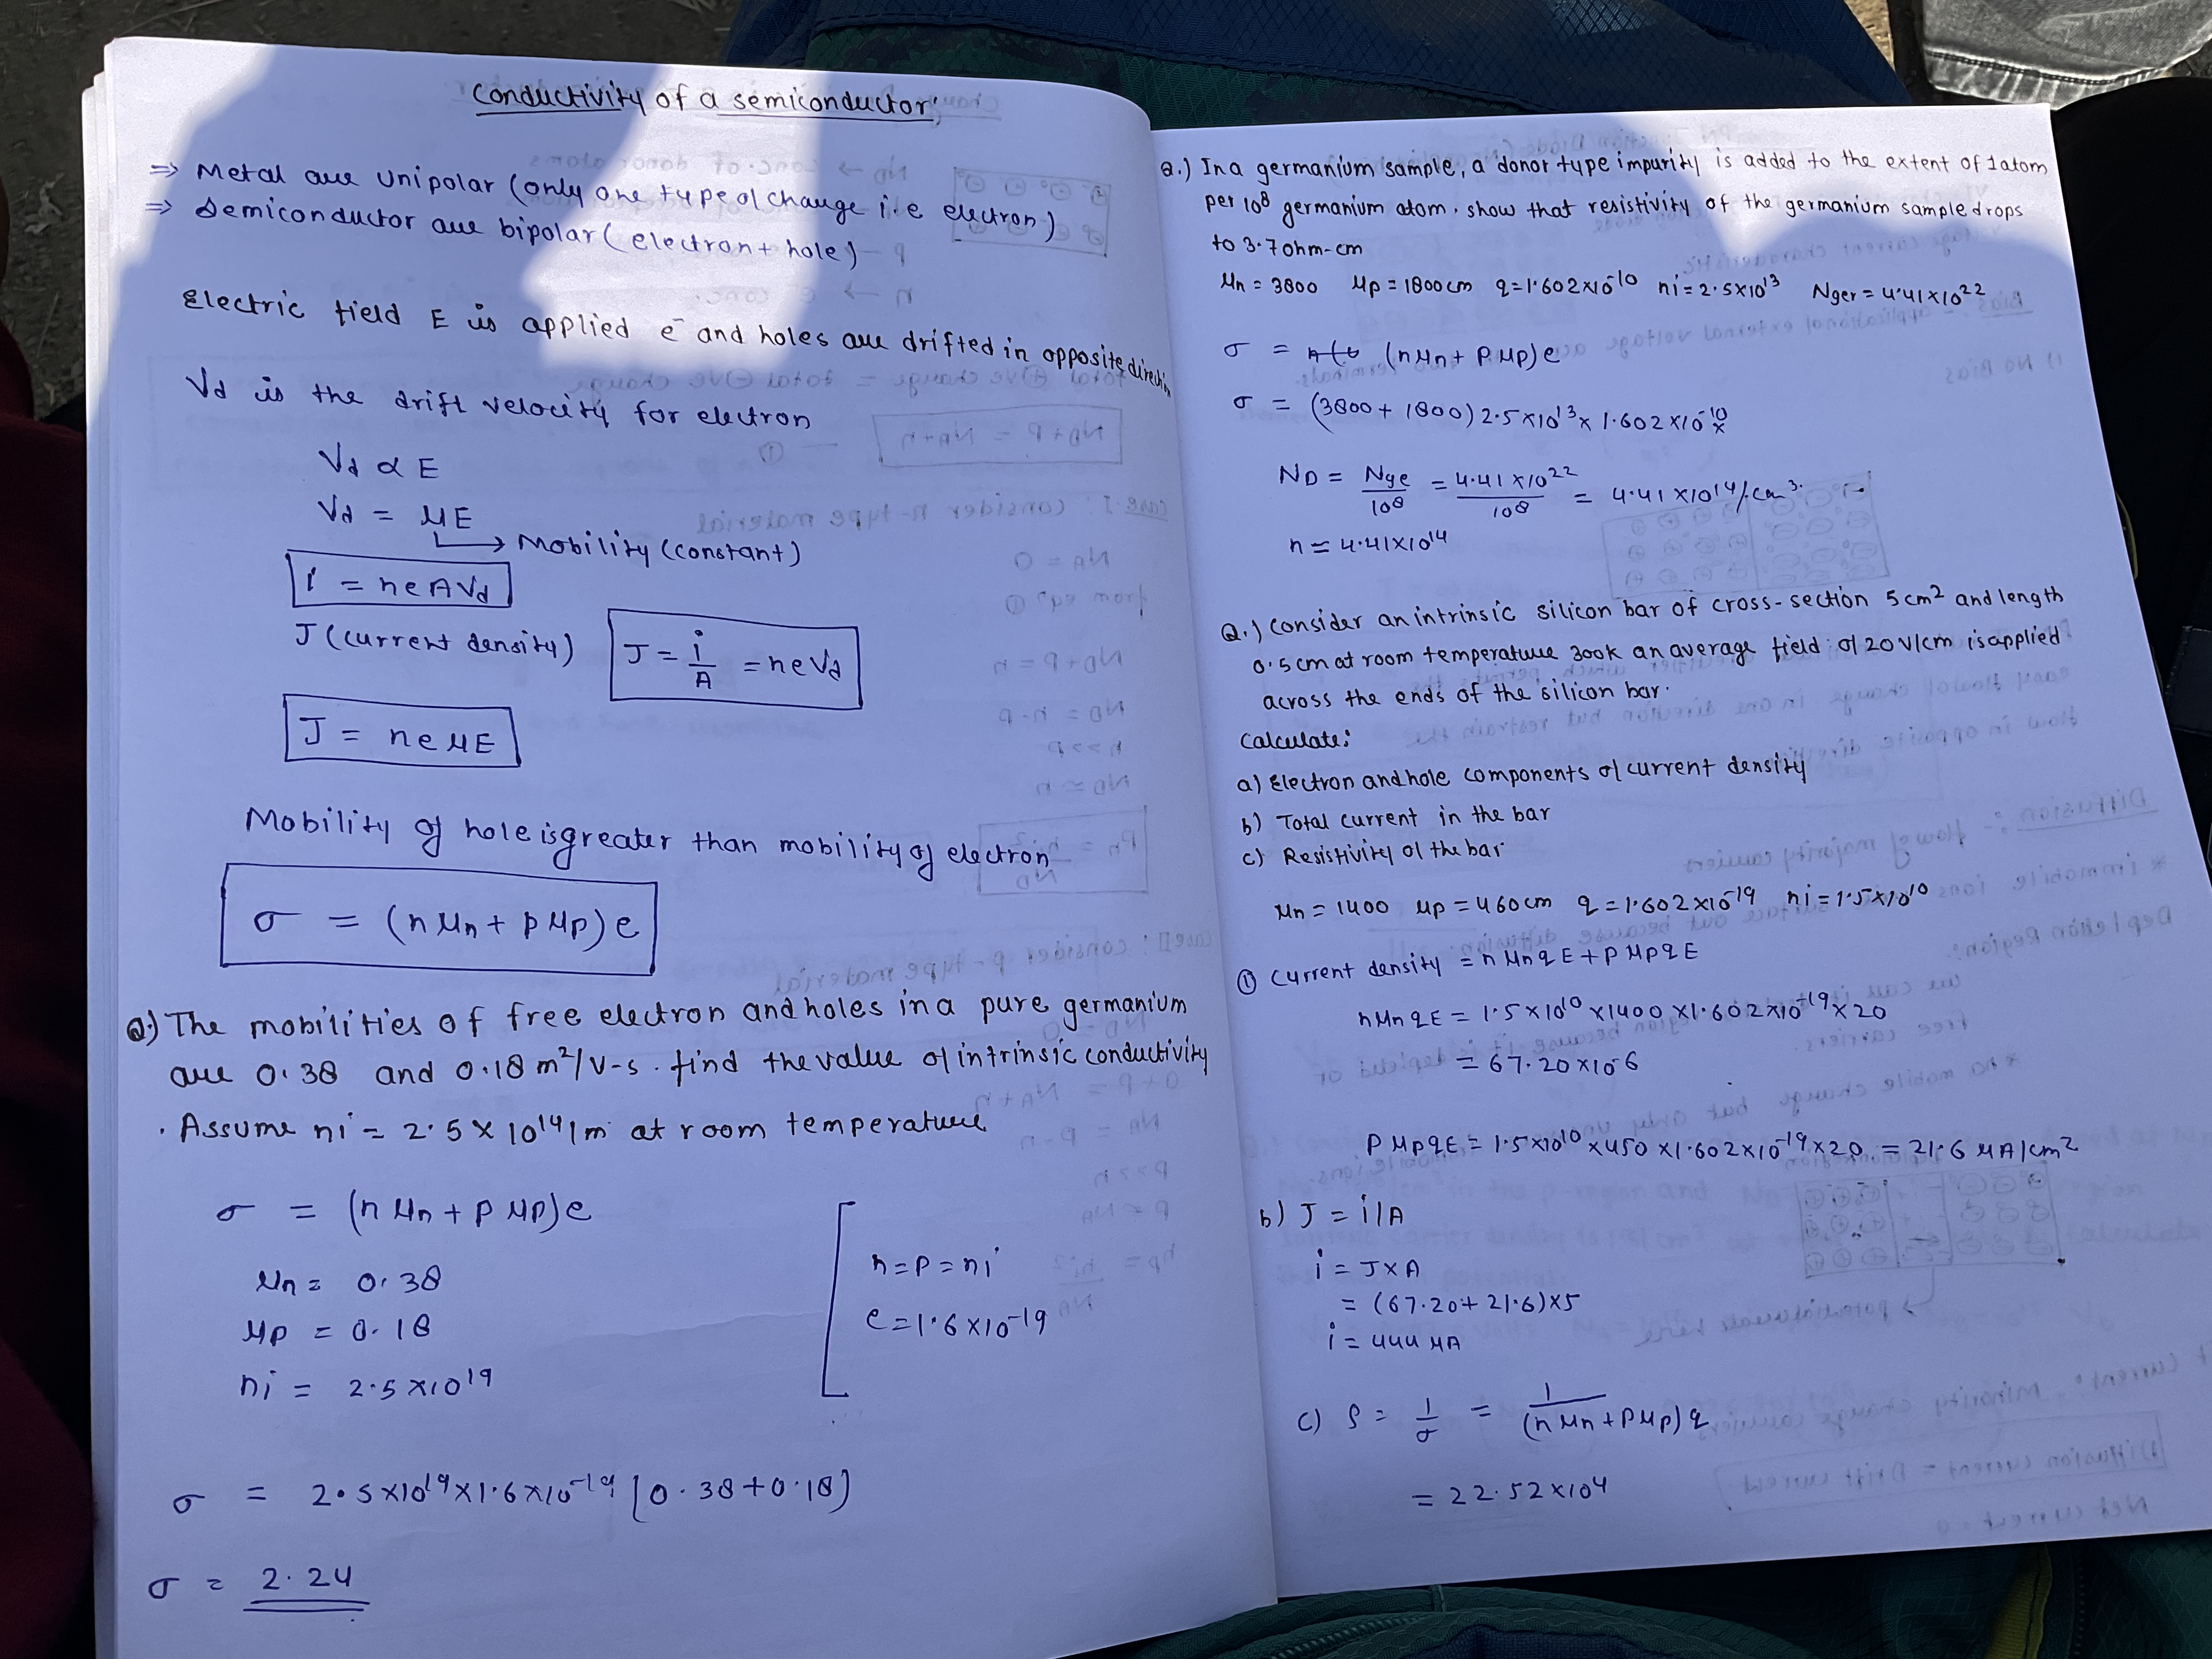 Conductivity of a semiconductor:
⇒ Metal are unipolar (only one type of charge i.e electron)
⇒ Semiconductor are bipolar (electron + hole)
Electric field E is applied e⁻ and holes are drifted in opposite direction
Vd is the drift velocity for electron
Vd ∝ E
Vd = μE
→ Mobility (constant)
i = neAVd
J (current density) J = i/A = neVd
J = neμE
Mobility of hole is greater than mobility of electron
σ = (nμn + pμp)e
Q.) The mobilities of free electron and holes in a pure germanium
are 0.38 and 0.18 m²/V-s. find the value of intrinsic conductivity
. Assume ni = 2.5 × 10¹⁹/m at room temperature
σ = (nμn + pμp)e
μn = 0.38
μp = 0.18
ni = 2.5×10¹⁹
n=p=ni
e=1.6×10⁻¹⁹
σ = 2.5×10¹⁹×1.6×10⁻¹⁹ [0.38+0.18)
σ = 2.24
Q.) In a germanium sample, a donor type impurity is added to the extent of 1 atom
per 10⁸ germanium atom. show that resistivity of the germanium sample drops
to 3.7 ohm-cm
μn = 3800 μp = 1800 cm q=1.602×10⁻¹⁰ ni=2.5×10¹³ Nger = 4.41×10²²
σ = (nμn + pμp)e
σ = (3800 + 1800) 2.5×10¹³ × 1.602×10⁻¹⁹
ND = Nge/10⁸ = 4.41×10²²/10⁸ = 4.41×10¹⁴/cm³.
n = 4.41×10¹⁴
Q.) Consider an intrinsic silicon bar of cross-section 5cm² and length
0.5cm at room temperature 300k an average field of 20 V/cm is applied
across the ends of the silicon bar.
Calculate:
a) Electron and hole components of current density
b) Total current in the bar
c) Resistivity of the bar
μn = 1400 μp = 460cm q=1.602×10⁻¹⁹ ni=1.5×10¹⁰
① Current density = nμnqE + pμpqE
nμnqE = 1.5×10¹⁰×1400×1.602×10⁻¹⁹×20
= 67.20×10⁻⁶
pμpqE = 1.5×10¹⁰×450×1.602×10⁻¹⁹×20 = 21.6 μA/cm²
b) J = i/A
i = J×A
= (67.20+21.6)×5
i = 444 μA
c) ρ = 1/σ = 1/(nμn + pμp)q
= 22.52×10⁴